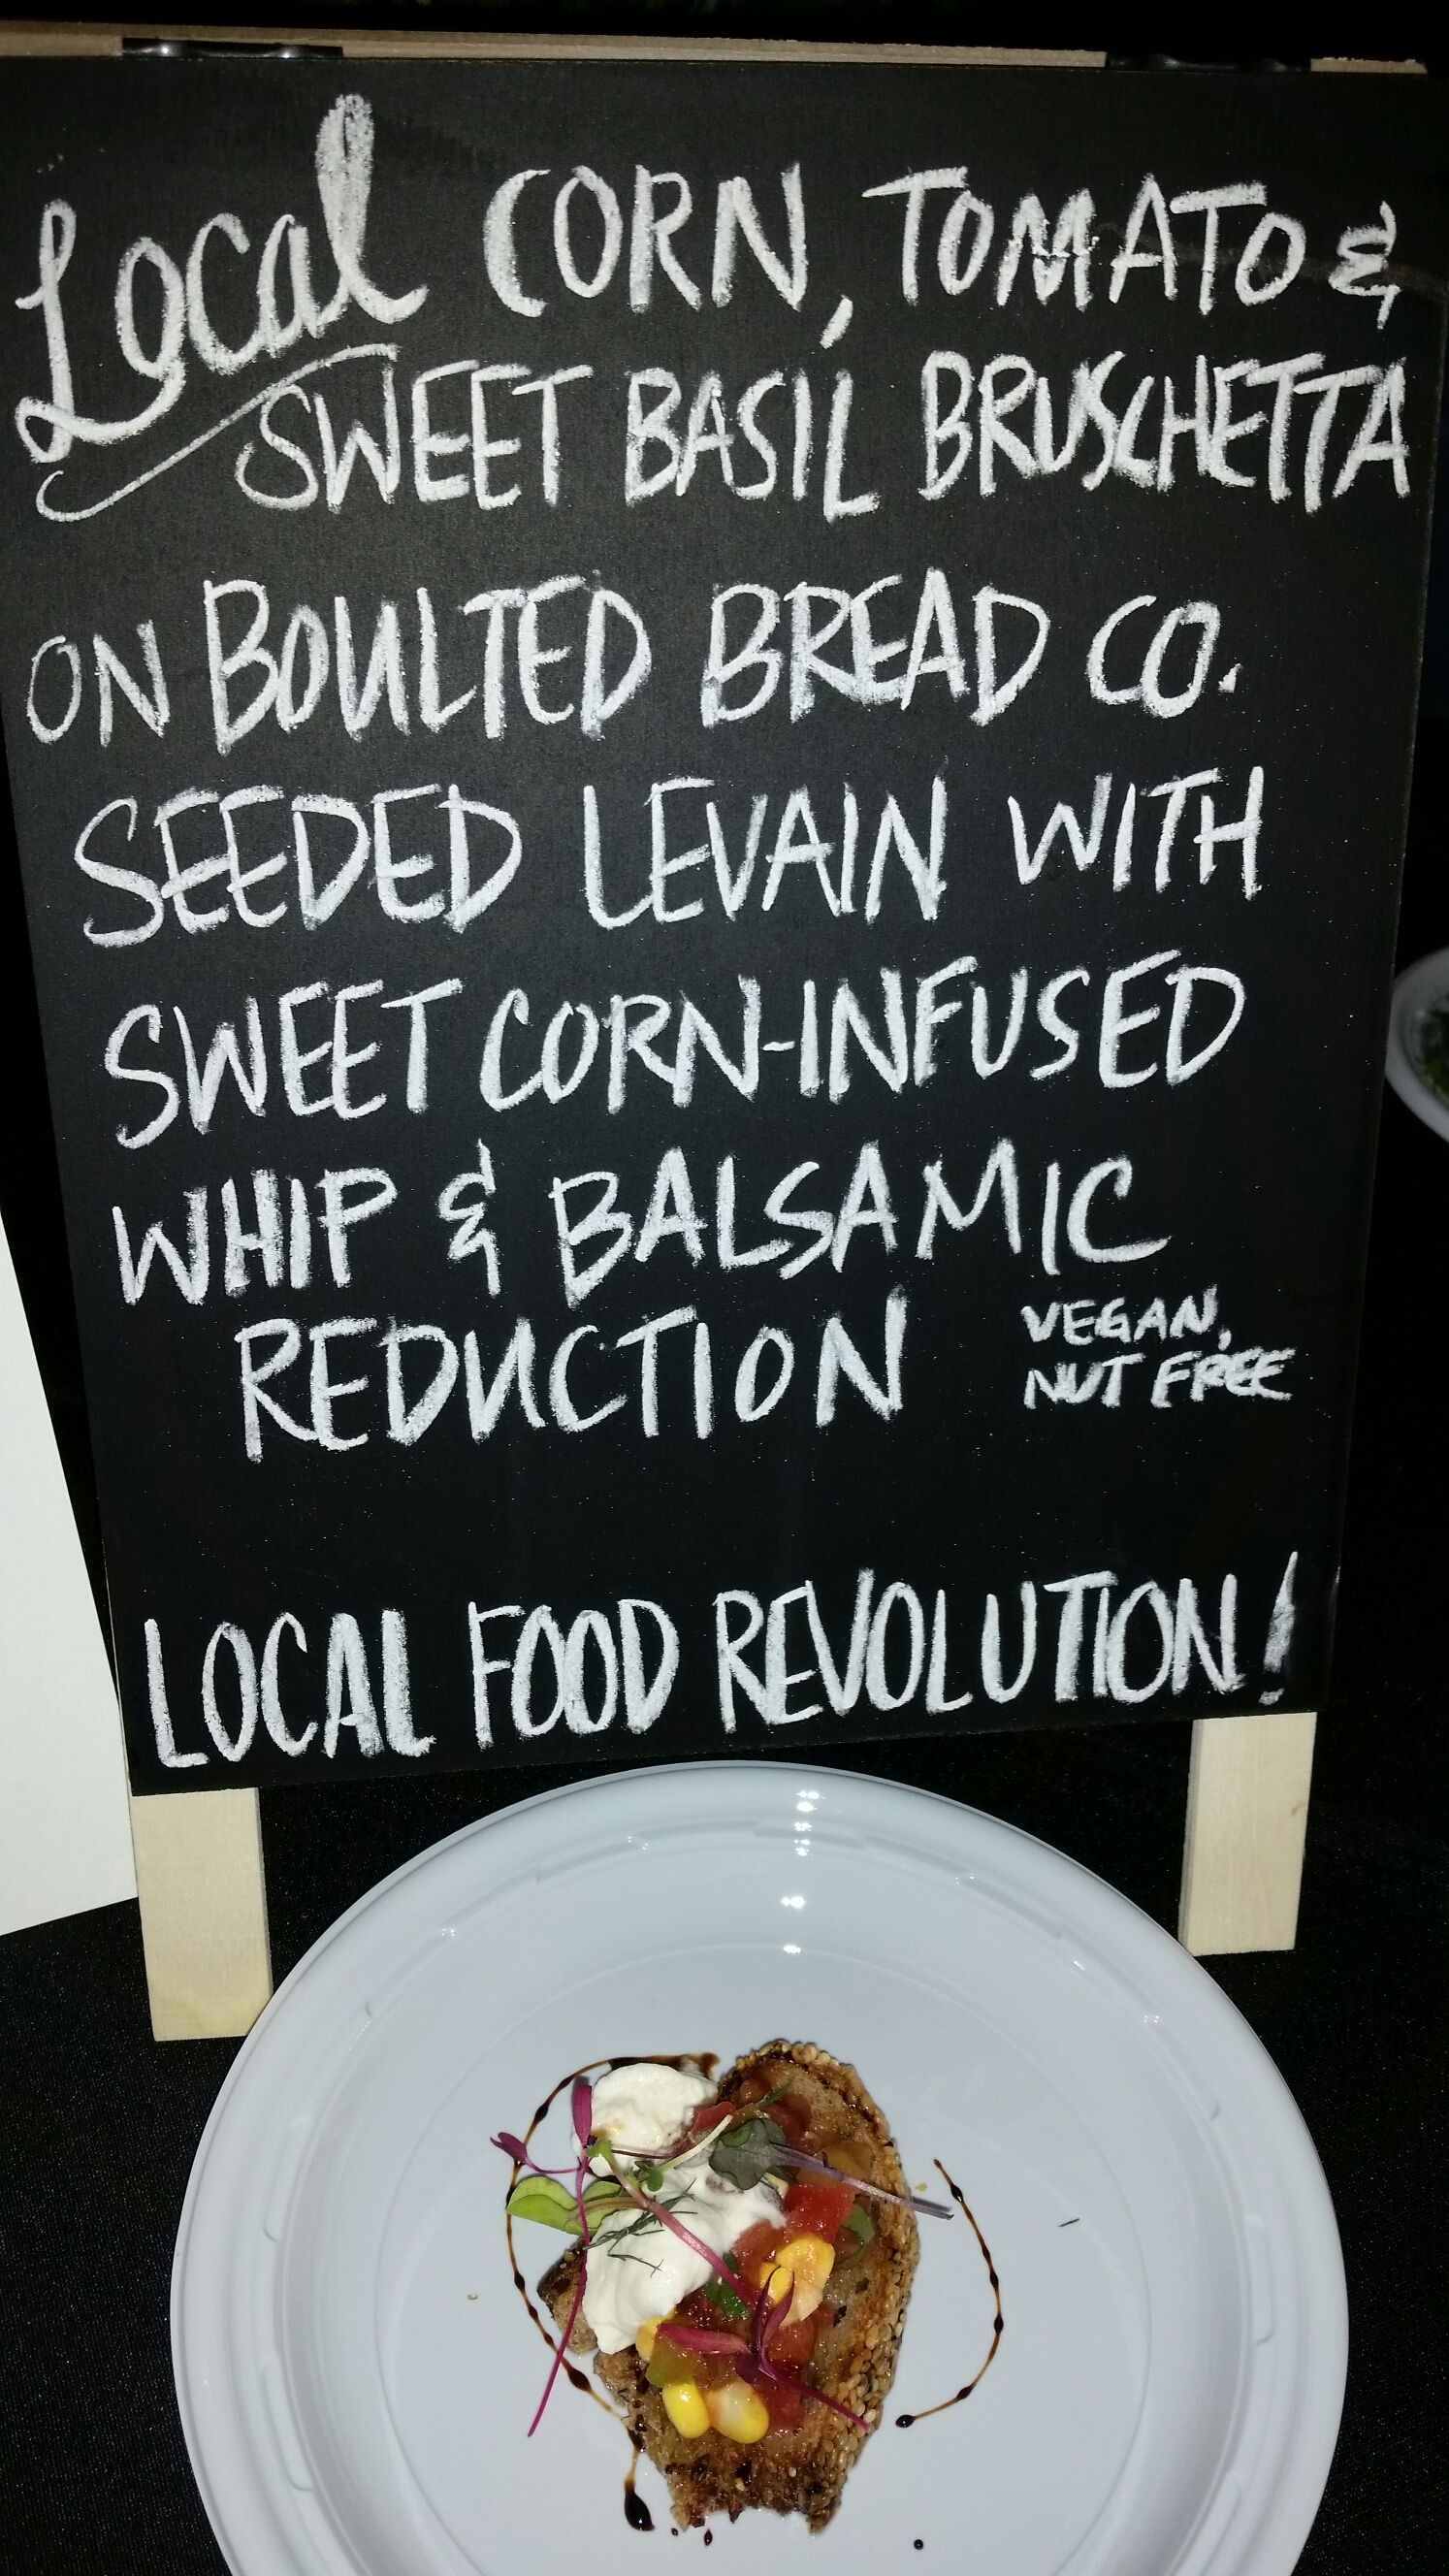 Local CORN, TOMATO &
SWEET BASIL BRUSCHETTA
ON BOULTED BREAD CO.
SEEDED LEVAIN WITH
SWEET CORN-INFUSED
WHIP & BALSAMIC
REDUCTION
VEGAN,
NUT FREE
LOCAL FOOD REVOLUTION!